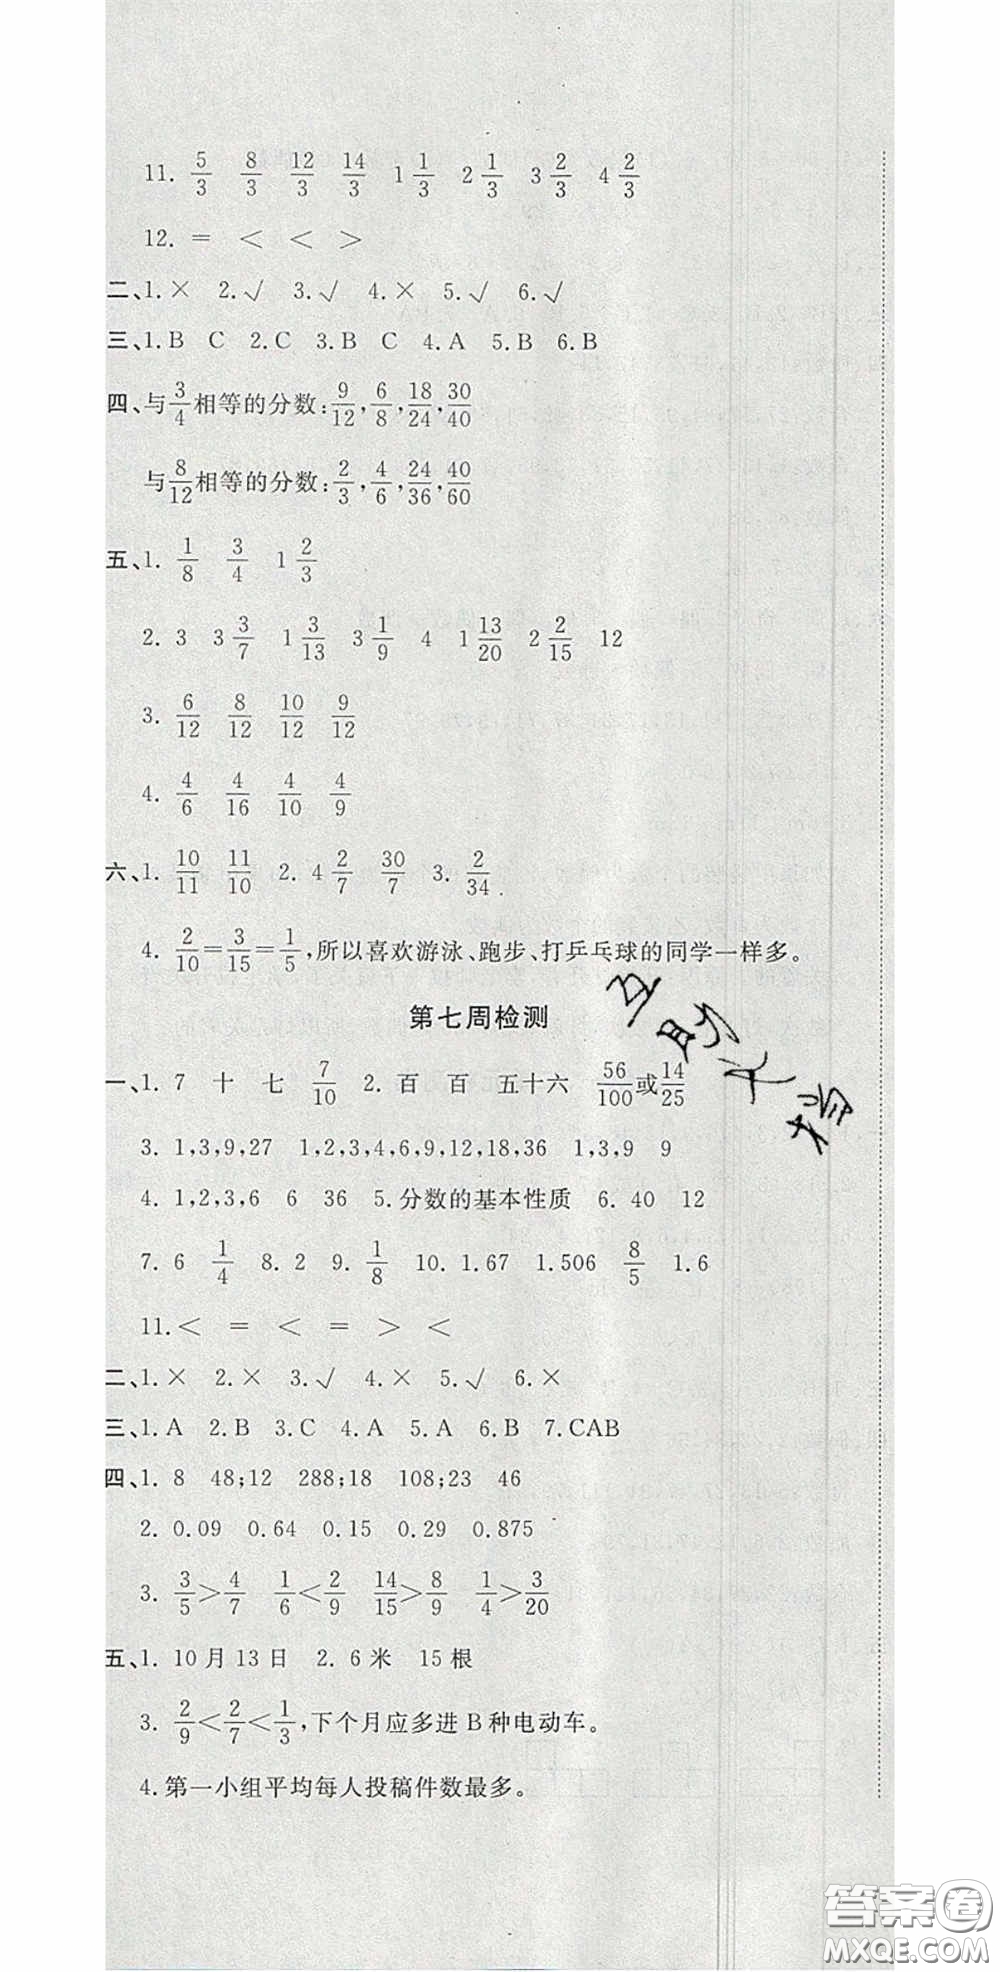 11. 5/3 8/3 12/3 14/3 1 1/3 2 1/3 3 2/3 4 2/3
12. = < < >
二、1.× 2.√ 3.√ 4.× 5.√ 6.√
三、1.B C 2.C 3.B C 4.A 5.B 6.B
四、与3/4相等的分数:9/12,6/8,18/24,30/40
与8/12相等的分数:2/3,4/6,24/36,40/60
五、1. 1/8 3/4 1 2/3
2. 3 3 3/7 1 3/13 3 1/9 4 1 13/20 2 2/15 12
3. 6/12 8/12 10/12 9/12
4. 4/6 4/16 4/10 4/9
六、1. 10/11 11/10 2. 4 2/7 30/7 3. 2/34
4. 2/10=3/15=1/5,所以喜欢游泳、跑步、打乒乓球的同学一样多。
第七周检测
一、1. 7 十 七 7/10 2. 百 百 五十六 56/100或14/25
3. 1,3,9,27 1,2,3,4,6,9,12,18,36 1,3,9 9
4. 1,2,3,6 6 36 5.分数的基本性质 6. 40 12
7. 6 1/4 8. 2 9. 1/8 10. 1.67 1.506 8/5 1.6
11.< = < = > <
二、1.× 2.× 3.√ 4.× 5.√ 6.×
三、1.A 2.B 3.C 4.A 5.A 6.B 7.CAB
四、1. 8 48;12 288;18 108;23 46
2. 0.09 0.64 0.15 0.29 0.875
3. 3/5>4/7 1/6<2/9 14/15>8/9 1/4>3/20
五、1. 10月13日 2. 6米 15根
3. 2/9<2/7<1/3,下个月应多进B种电动车。
4.第一小组平均每人投稿件数最多。
答案卷
MXQE.COM